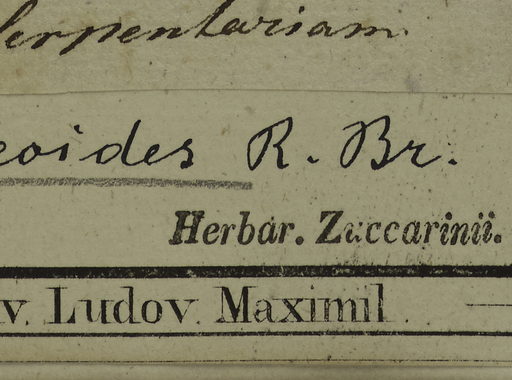 Serpentariam
eoides R. Br.
Herbar. Zuccarinii.
v. Ludov. Maximil